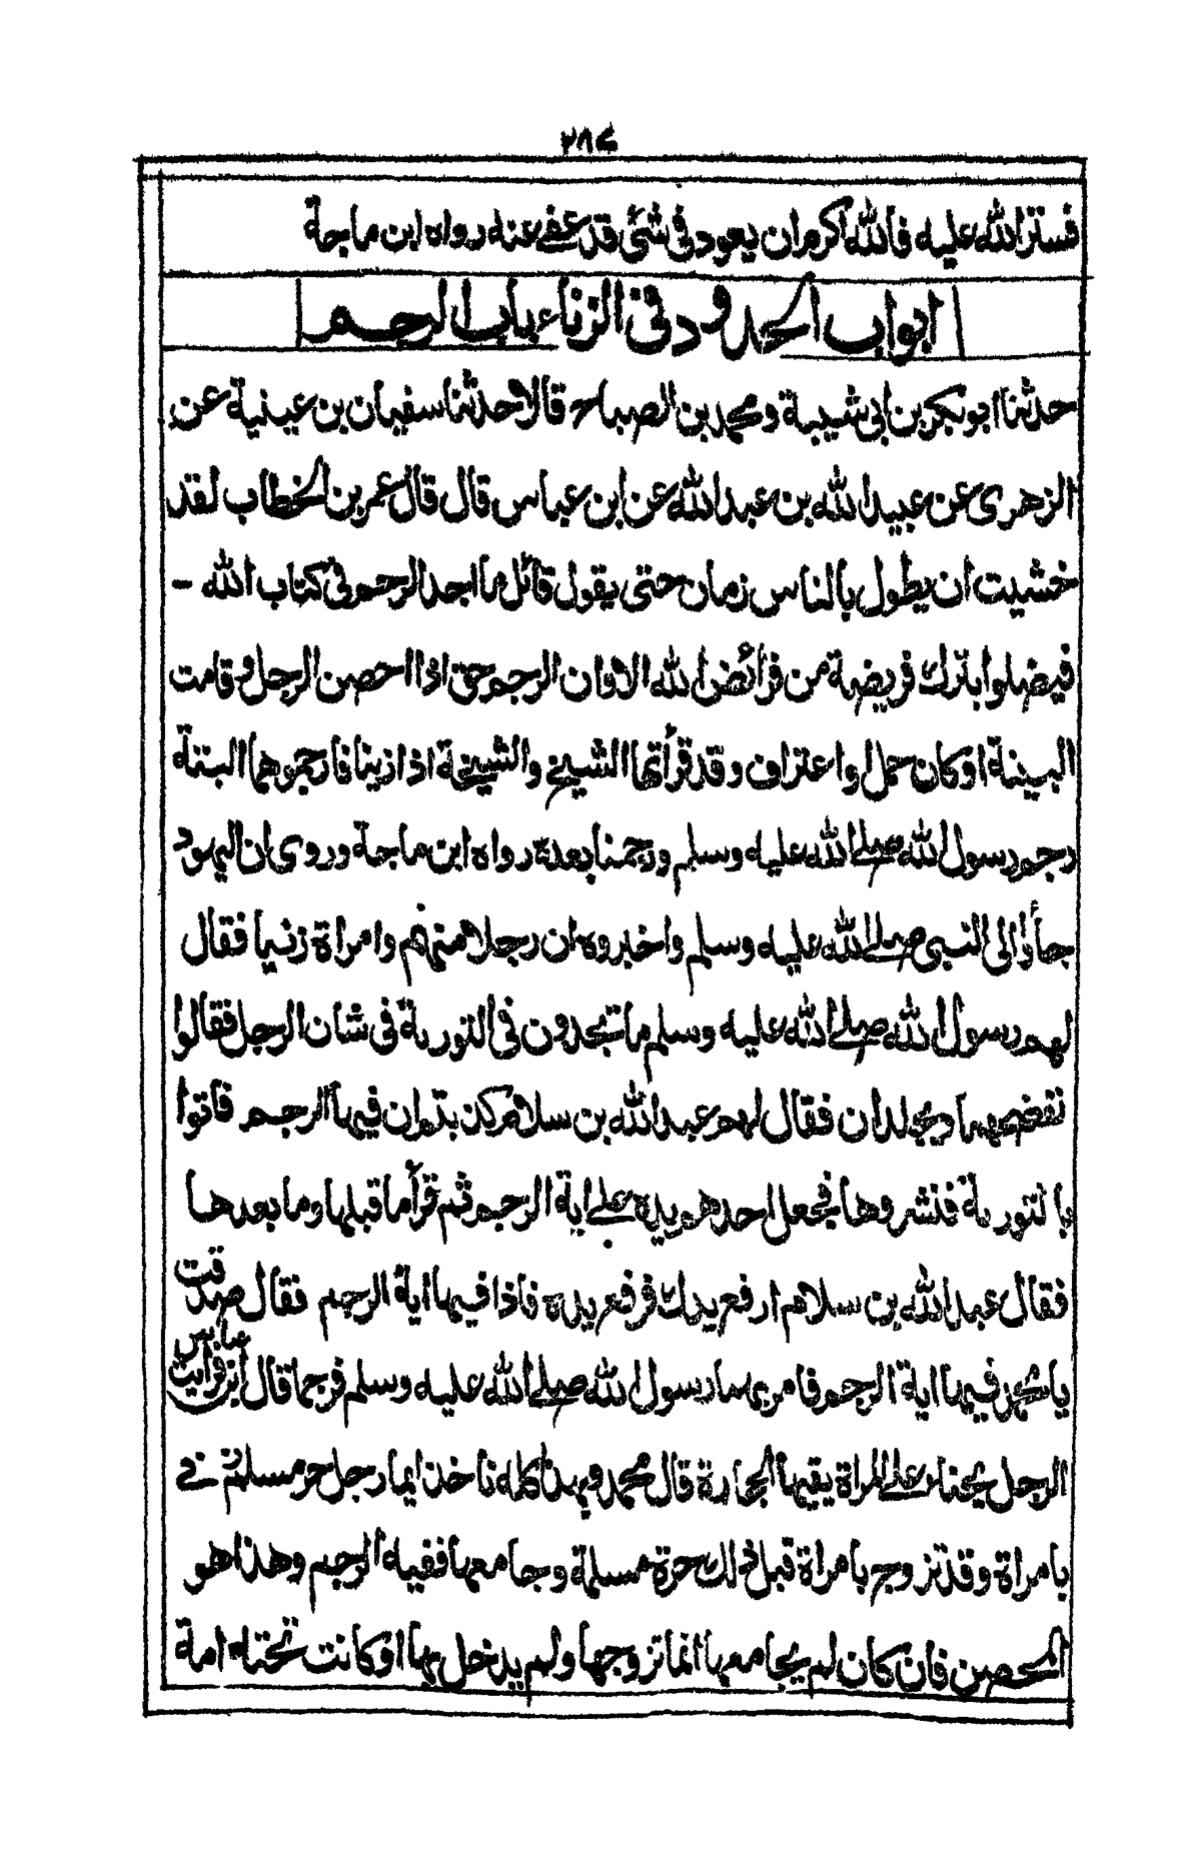 ٢٨٤
فستر الله عليه فالله اكرم ان يعود في شئ قد عفى عنه رواه ابن ماجة
ابواب الحدود في الزناء باب الرجم
حدثنا ابو بكر بن ابي شيبة ومحمد بن الصباح قالا حدثنا سفيان بن عيينة عن
الزهرى عن عبيد الله بن عبد الله عن ابن عباس قال قال عمر بن الخطاب لقد
خشيت ان يطول بالناس زمان حتى يقول قائل ما اجد الرجم في كتاب الله -
فيضلوا بترك فريضة من فرائض الله الا وان الرجم حق اذا احصن الرجل وقامت
البينة او كان حمل او اعتراف وقد قرأتها الشيخ والشيخة اذا زنيا فارجموهما البتة
رجم رسول الله صلے الله عليه وسلم ورجمنا بعده رواه ابن ماجة وروى ان اليهود
جأوا الى النبي صلے الله عليه وسلم واخبروه ان رجلا منهم وامراة زنيا فقال
لهم رسول الله صلے الله عليه وسلم ما تجدون في التورىة في شان الرجل فقالوا
نفضحهما ويجلدان فقال لهم عبد الله بن سلام كذبتم ان فيها الرجم فاتوا
بالتورىة فنشروها فجعل احدهم يده علے اية الرجم ثم قرأ ما قبلها وما بعدها
فقال عبد الله بن سلام ارفع يدك فرفع يده فاذا فيها اية الرجم فقال صدقت
يا محمد فيها اية الرجم فامر بهما رسول الله صلے الله عليه وسلم فرجما قال ابن عباس فرأيت
الرجل يجنأ علے المراة يقيها الحجارة قال محمد وبهذا كله ناخذ ايما رجل حر مسلم زنى
بامراة وقد تزوج بامراة قبل ذلك حرة مسلمة وجامعها ففيه الرجم وهذا هو
المحصن فان كان لم يجامعها انما تزوجها ولم يدخل بها او كانت تحته امة